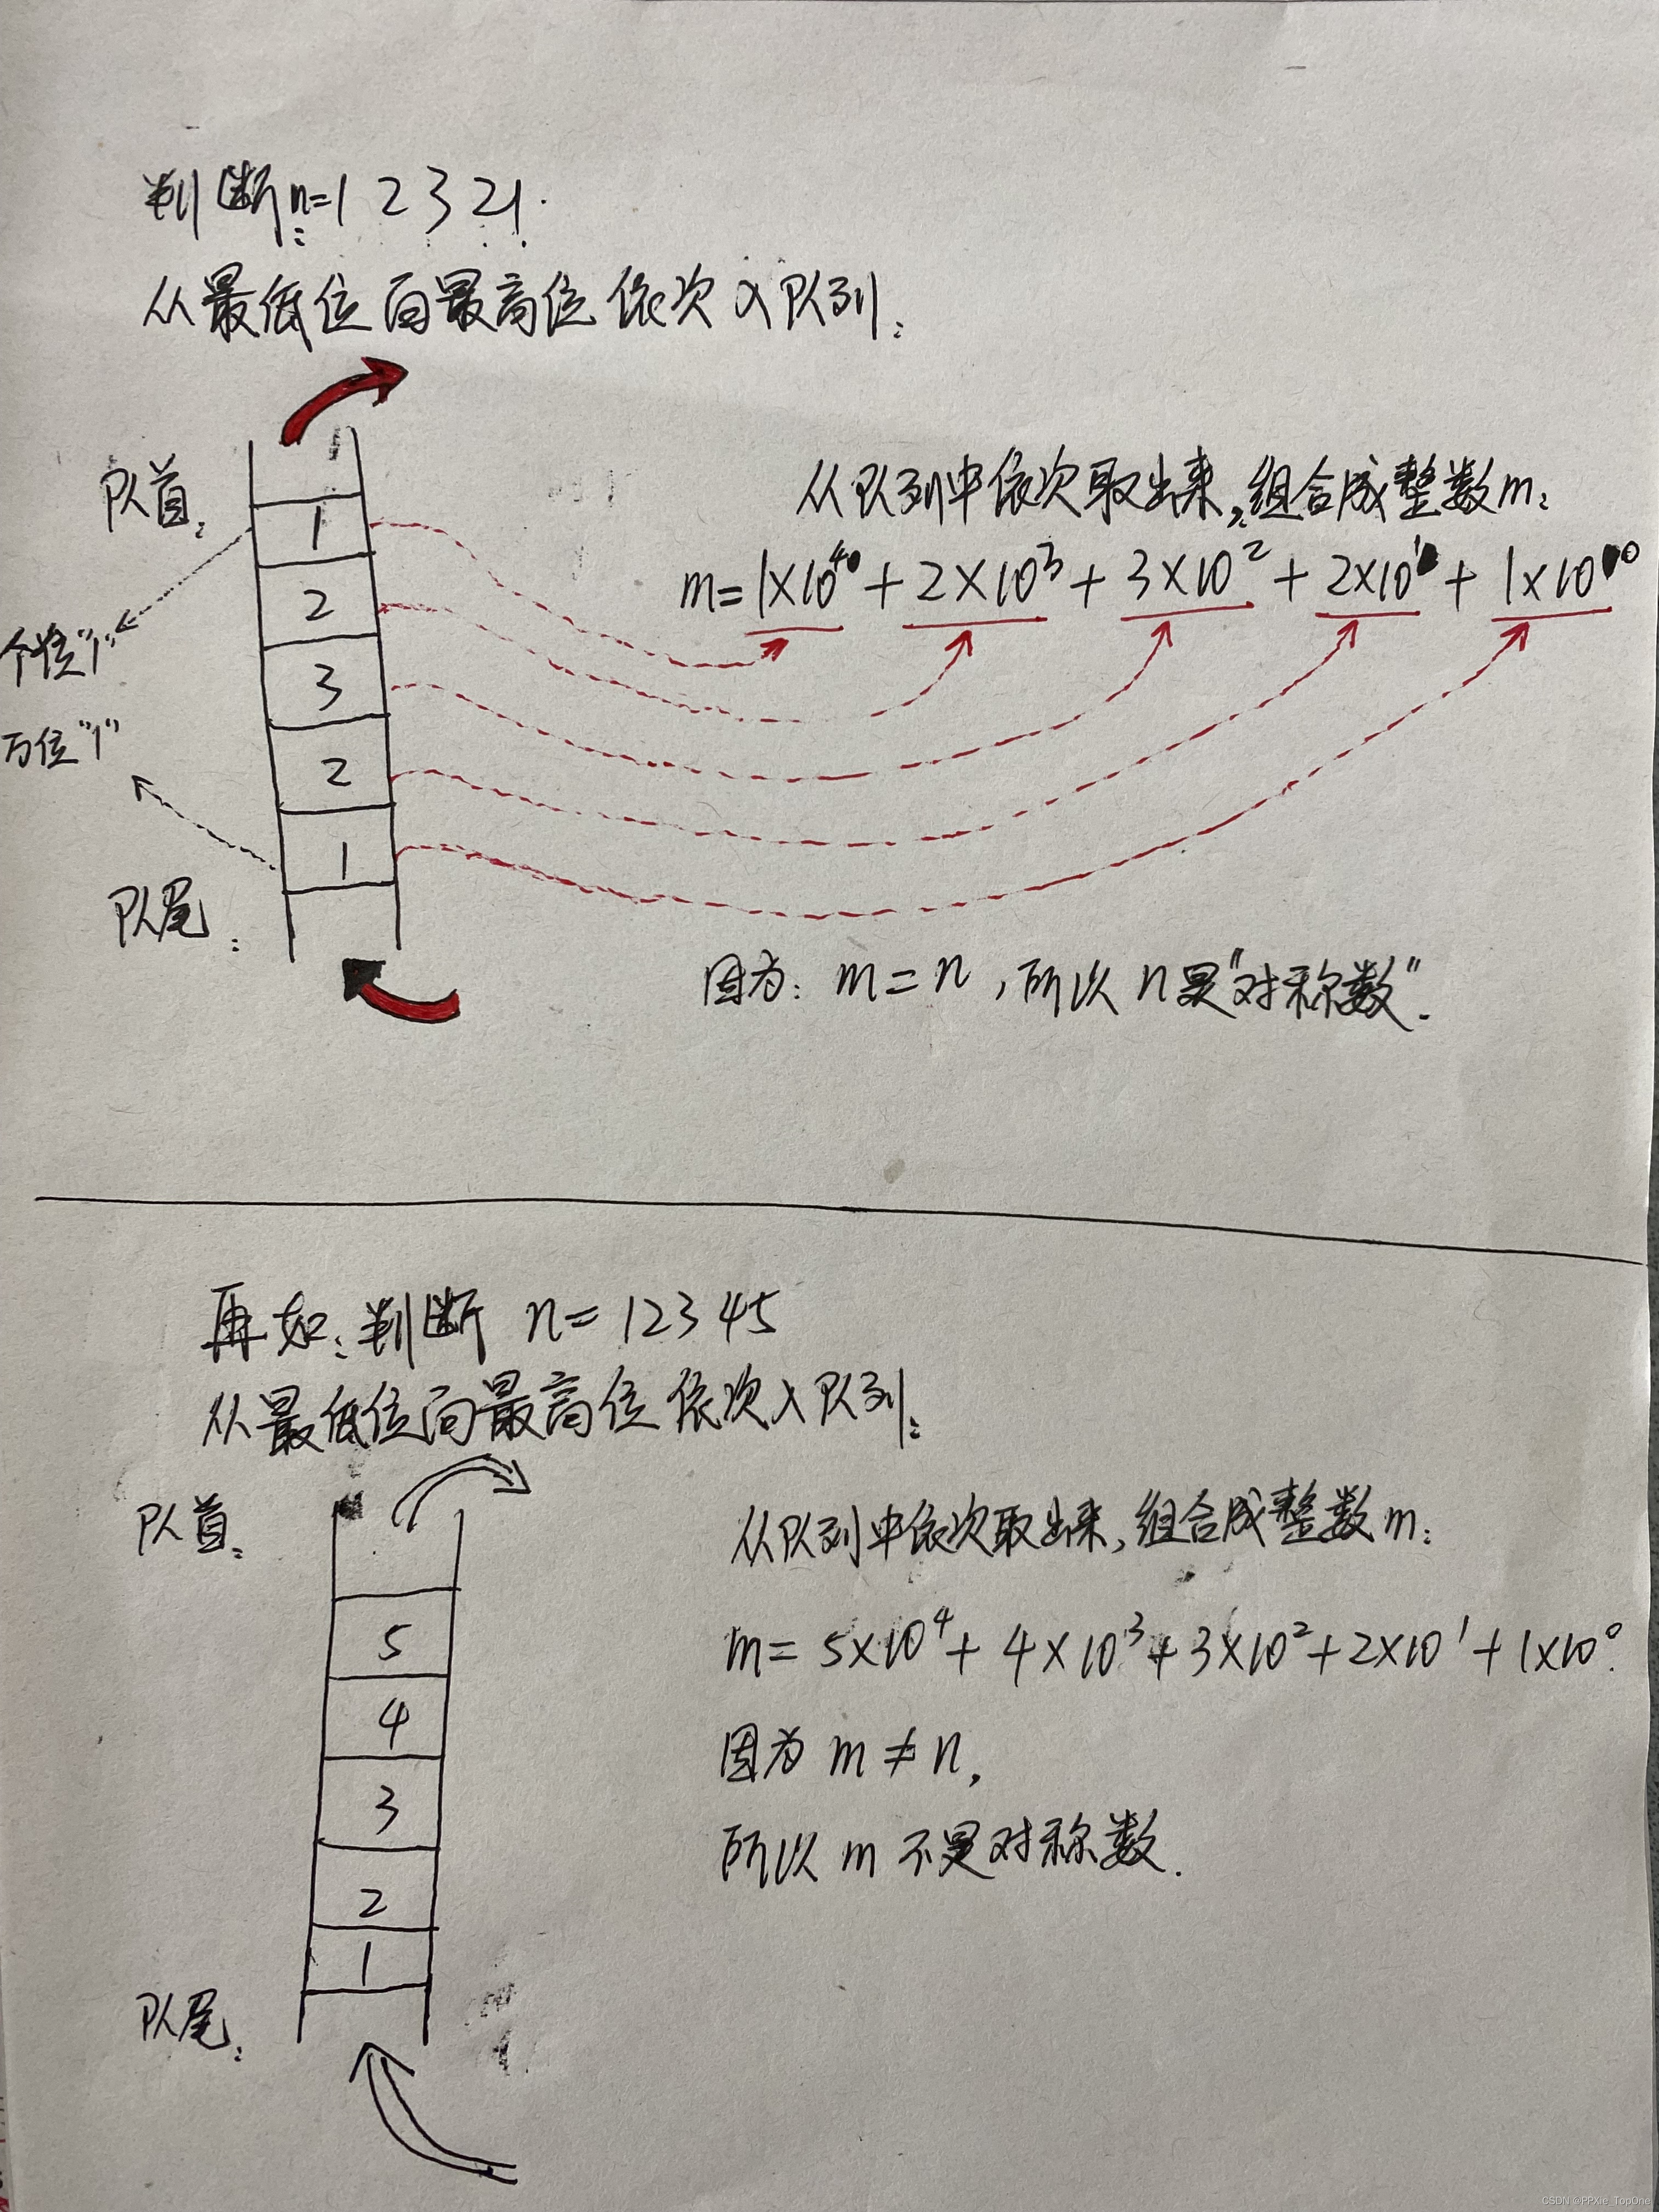 判断n=12321.
从最低位向最高位依次入队列:
队首:
1
2
3
2
1
个位"1"
万位"1"
队尾:
从队列中依次取出来,组合成整数m:
m=1×10⁴+2×10³+3×10²+2×10¹+1×10⁰
因为:m=n,所以n是"对称数".
再如:判断 n=12345
从最低位向最高位依次入队列:
队首:
5
4
3
2
1
队尾:
从队列中依次取出来,组合成整数m:
m=5×10⁴+4×10³+3×10²+2×10¹+1×10⁰.
因为 m≠n,
所以 m 不是对称数.
CSDN @PPXie_TopOne